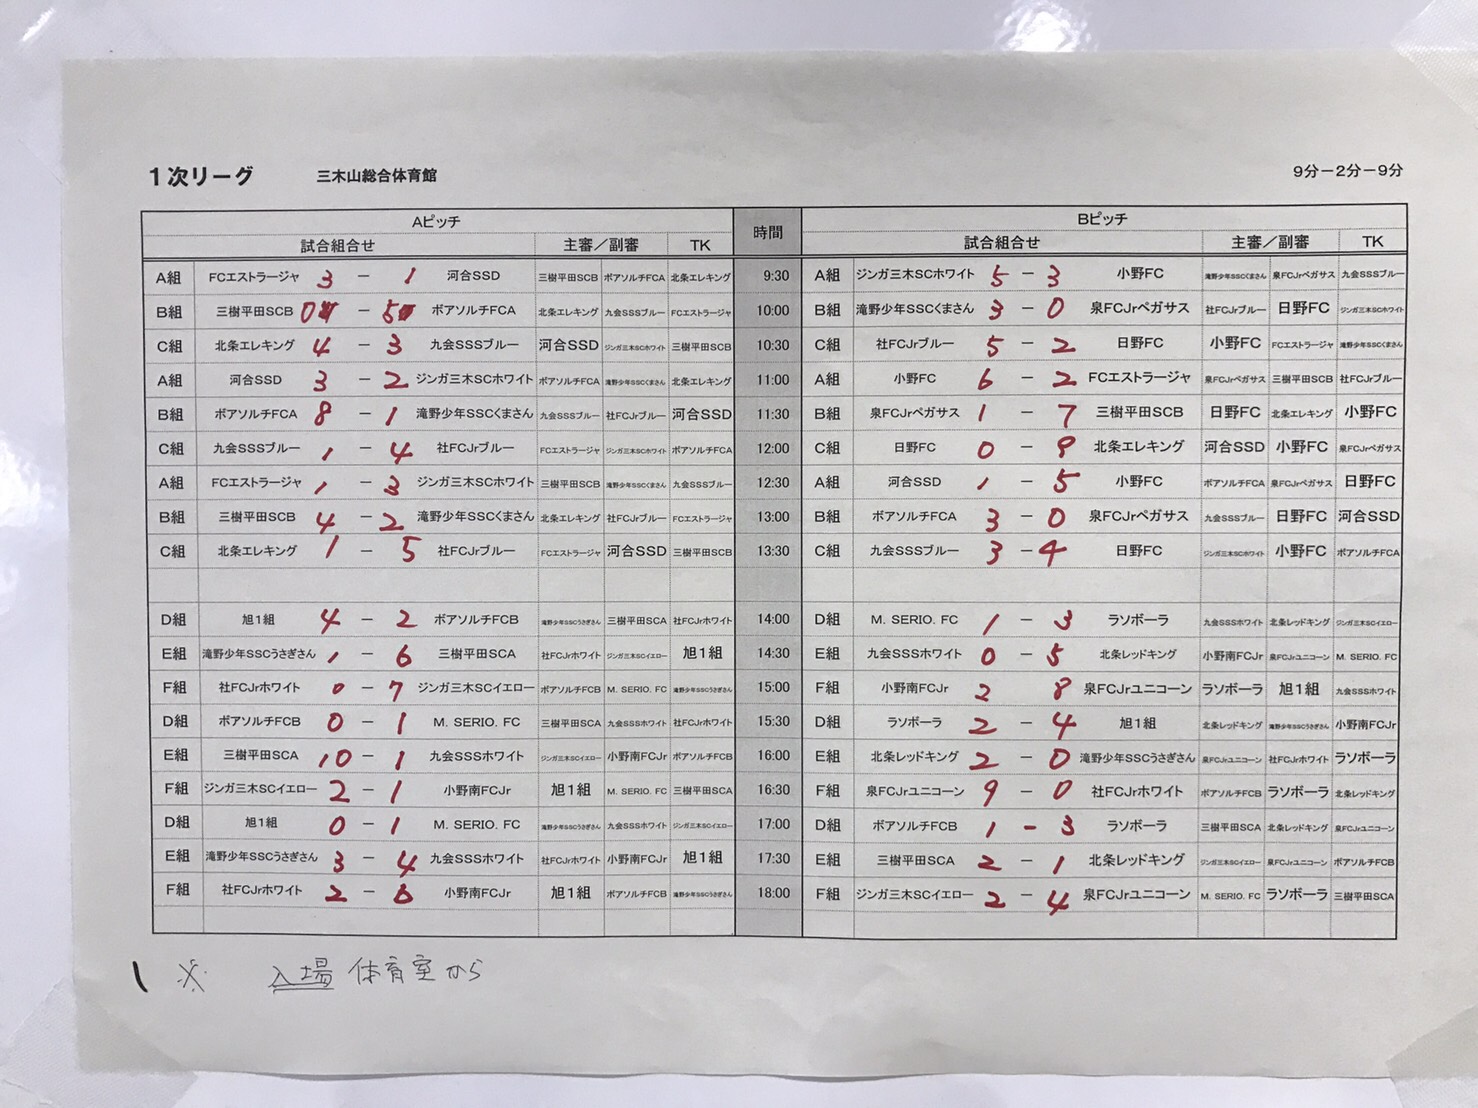 1次リーグ 三木山総合体育館 9分－2分－9分
Aピッチ 時間 Bピッチ
試合組合せ 主審／副審 TK 試合組合せ 主審／副審 TK
A組 FCエストラージャ 3 － 1 河合SSD 三樹平田SCB ボアソルチFCA 北条エレキング 9:30 A組 ジンガ三木SCホワイト 5 － 3 小野FC 滝野少年SSCくまさん 泉FCJrペガサス 九会SSSブルー
B組 三樹平田SCB 0 － 5 ボアソルチFCA 北条エレキング 九会SSSブルー FCエストラージャ 10:00 B組 滝野少年SSCくまさん 3 － 0 泉FCJrペガサス 社FCJrブルー 日野FC ジンガ三木SCホワイト
C組 北条エレキング 4 － 3 九会SSSブルー 河合SSD ジンガ三木SCホワイト 三樹平田SCB 10:30 C組 社FCJrブルー 5 － 2 日野FC 小野FC FCエストラージャ 滝野少年SSCくまさん
A組 河合SSD 3 － 2 ジンガ三木SCホワイト ボアソルチFCA 滝野少年SSCくまさん 北条エレキング 11:00 A組 小野FC 6 － 2 FCエストラージャ 泉FCJrペガサス 三樹平田SCB 社FCJrブルー
B組 ボアソルチFCA 8 － 1 滝野少年SSCくまさん 九会SSSブルー 社FCJrブルー 河合SSD 11:30 B組 泉FCJrペガサス 1 － 7 三樹平田SCB 日野FC 北条エレキング 小野FC
C組 九会SSSブルー 1 － 4 社FCJrブルー FCエストラージャ ジンガ三木SCホワイト ボアソルチFCA 12:00 C組 日野FC 0 － 9 北条エレキング 河合SSD 小野FC 泉FCJrペガサス
A組 FCエストラージャ 1 － 3 ジンガ三木SCホワイト 三樹平田SCB 滝野少年SSCくまさん 九会SSSブルー 12:30 A組 河合SSD 1 － 5 小野FC ボアソルチFCA 泉FCJrペガサス 日野FC
B組 三樹平田SCB 4 － 2 滝野少年SSCくまさん 北条エレキング 社FCJrブルー FCエストラージャ 13:00 B組 ボアソルチFCA 3 － 0 泉FCJrペガサス 九会SSSブルー 日野FC 河合SSD
C組 北条エレキング 1 － 5 社FCJrブルー FCエストラージャ 河合SSD 三樹平田SCB 13:30 C組 九会SSSブルー 3 － 4 日野FC ジンガ三木SCホワイト 小野FC ボアソルチFCA
D組 旭1組 4 － 2 ボアソルチFCB 滝野少年SSCうさぎさん 三樹平田SCA 社FCJrホワイト 14:00 D組 M. SERIO. FC 1 － 3 ラソボーラ 九会SSSホワイト 北条レッドキング ジンガ三木SCイエロー
E組 滝野少年SSCうさぎさん 1 － 6 三樹平田SCA 社FCJrホワイト ジンガ三木SCイエロー 旭1組 14:30 E組 九会SSSホワイト 0 － 5 北条レッドキング 小野南FCJr 泉FCJrユニコーン M. SERIO. FC
F組 社FCJrホワイト 0 － 7 ジンガ三木SCイエロー ボアソルチFCB M. SERIO. FC 滝野少年SSCうさぎさん 15:00 F組 小野南FCJr 2 8 泉FCJrユニコーン ラソボーラ 旭1組 九会SSSホワイト
D組 ボアソルチFCB 0 － 1 M. SERIO. FC 三樹平田SCA 九会SSSホワイト 社FCJrホワイト 15:30 D組 ラソボーラ 2 － 4 旭1組 北条レッドキング 滝野少年SSCうさぎさん 小野南FCJr
E組 三樹平田SCA 10 － 1 九会SSSホワイト ジンガ三木SCイエロー 小野南FCJr ボアソルチFCB 16:00 E組 北条レッドキング 2 － 0 滝野少年SSCうさぎさん 泉FCJrユニコーン 社FCJrホワイト ラソボーラ
F組 ジンガ三木SCイエロー 2 － 1 小野南FCJr 旭1組 M. SERIO. FC 三樹平田SCA 16:30 F組 泉FCJrユニコーン 9 － 0 社FCJrホワイト ボアソルチFCB ラソボーラ 北条レッドキング
D組 旭1組 0 － 1 M. SERIO. FC 滝野少年SSCうさぎさん 九会SSSホワイト ジンガ三木SCイエロー 17:00 D組 ボアソルチFCB 1 － 3 ラソボーラ 三樹平田SCA 北条レッドキング 泉FCJrユニコーン
E組 滝野少年SSCうさぎさん 3 － 4 九会SSSホワイト 社FCJrホワイト 小野南FCJr 旭1組 17:30 E組 三樹平田SCA 2 － 1 北条レッドキング ジンガ三木SCイエロー 泉FCJrユニコーン ボアソルチFCB
F組 社FCJrホワイト 2 － 6 小野南FCJr 旭1組 ボアソルチFCB 滝野少年SSCうさぎさん 18:00 F組 ジンガ三木SCイエロー 2 － 4 泉FCJrユニコーン M. SERIO. FC ラソボーラ 三樹平田SCA
※ 入場 体育室から